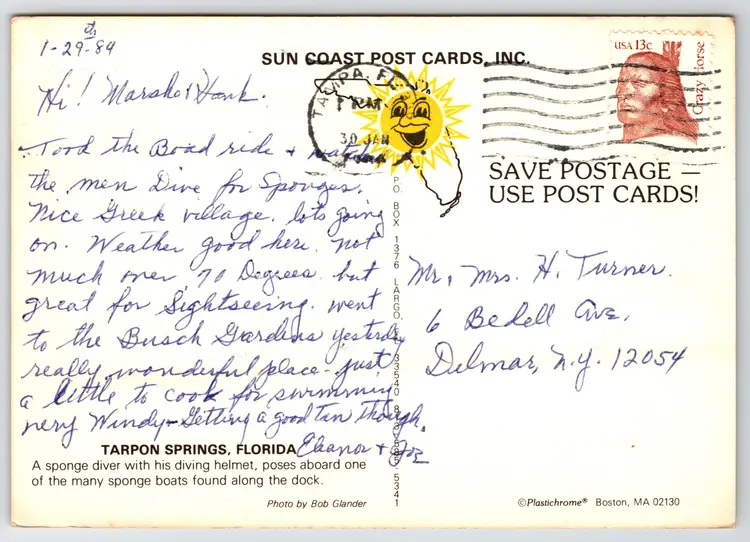 1-29th-84
SUN COAST POST CARDS, INC.
Hi! Marsha & Hank.
TAMPA, FL
PM
30 JAN
USA 13c
Crazy Horse
SAVE POSTAGE —
USE POST CARDS!
Took the Boad ride + watch
the men Dive for Sponges.
Nice Greek village. lots going
on. Weather good here. not
much over 70 Degrees. but
great for Sightseeing. went
to the Busch Gardens yesterday
really wonderful place - just
a little to cook for swimming
very Windy - Getting a good tan though.
Eleanor + Joe
P.O. BOX 1376 LARGO, FL 33540 813/585-5341
Mr. Mrs. H. Turner.
6 Bedell Ave.
Delmar, N.Y. 12054
TARPON SPRINGS, FLORIDA
A sponge diver with his diving helmet, poses aboard one
of the many sponge boats found along the dock.
Photo by Bob Glander
©Plastichrome® Boston, MA 02130